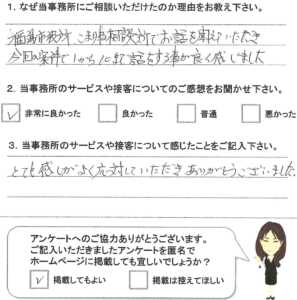 1. なぜ当事務所にご相談いただけたのか理由をお教え下さい。
でお話を聞いていただき
今回 で1から にまで話をする事が良く感じました
2. 当事務所のサービスや接客についてのご感想をお聞かせ下さい。
✓ 非常に良かった 良かった 普通 悪かった
3. 当事務所のサービスや接客について感じたことをご記入下さい。
とても感じがよく応対していただきありがとうございました。
アンケートへのご協力ありがとうございます。
ご記入いただきましたアンケートを匿名で
ホームページに掲載しても宜しいでしょうか？
✓ 掲載してもよい 掲載は控えてほしい